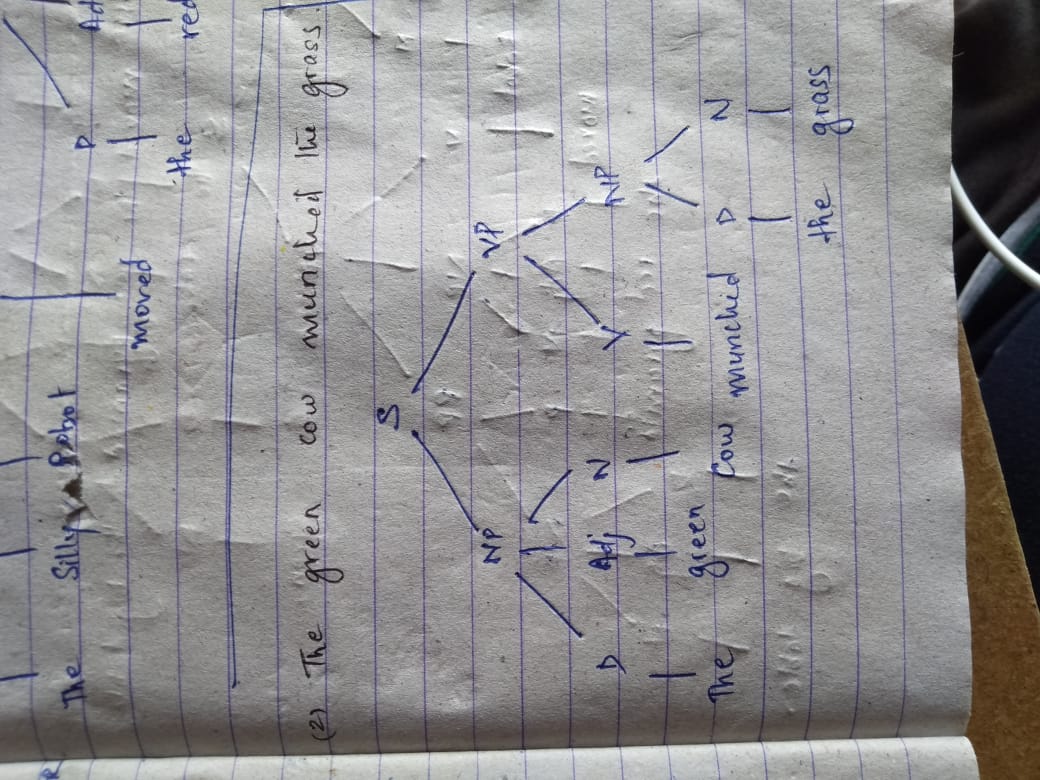 The Silly Robot
D Ad
moved
the red
(2) The green cow munched the grass.
S
NP VP
D Adj N V NP
The green Cow munched D N
the grass